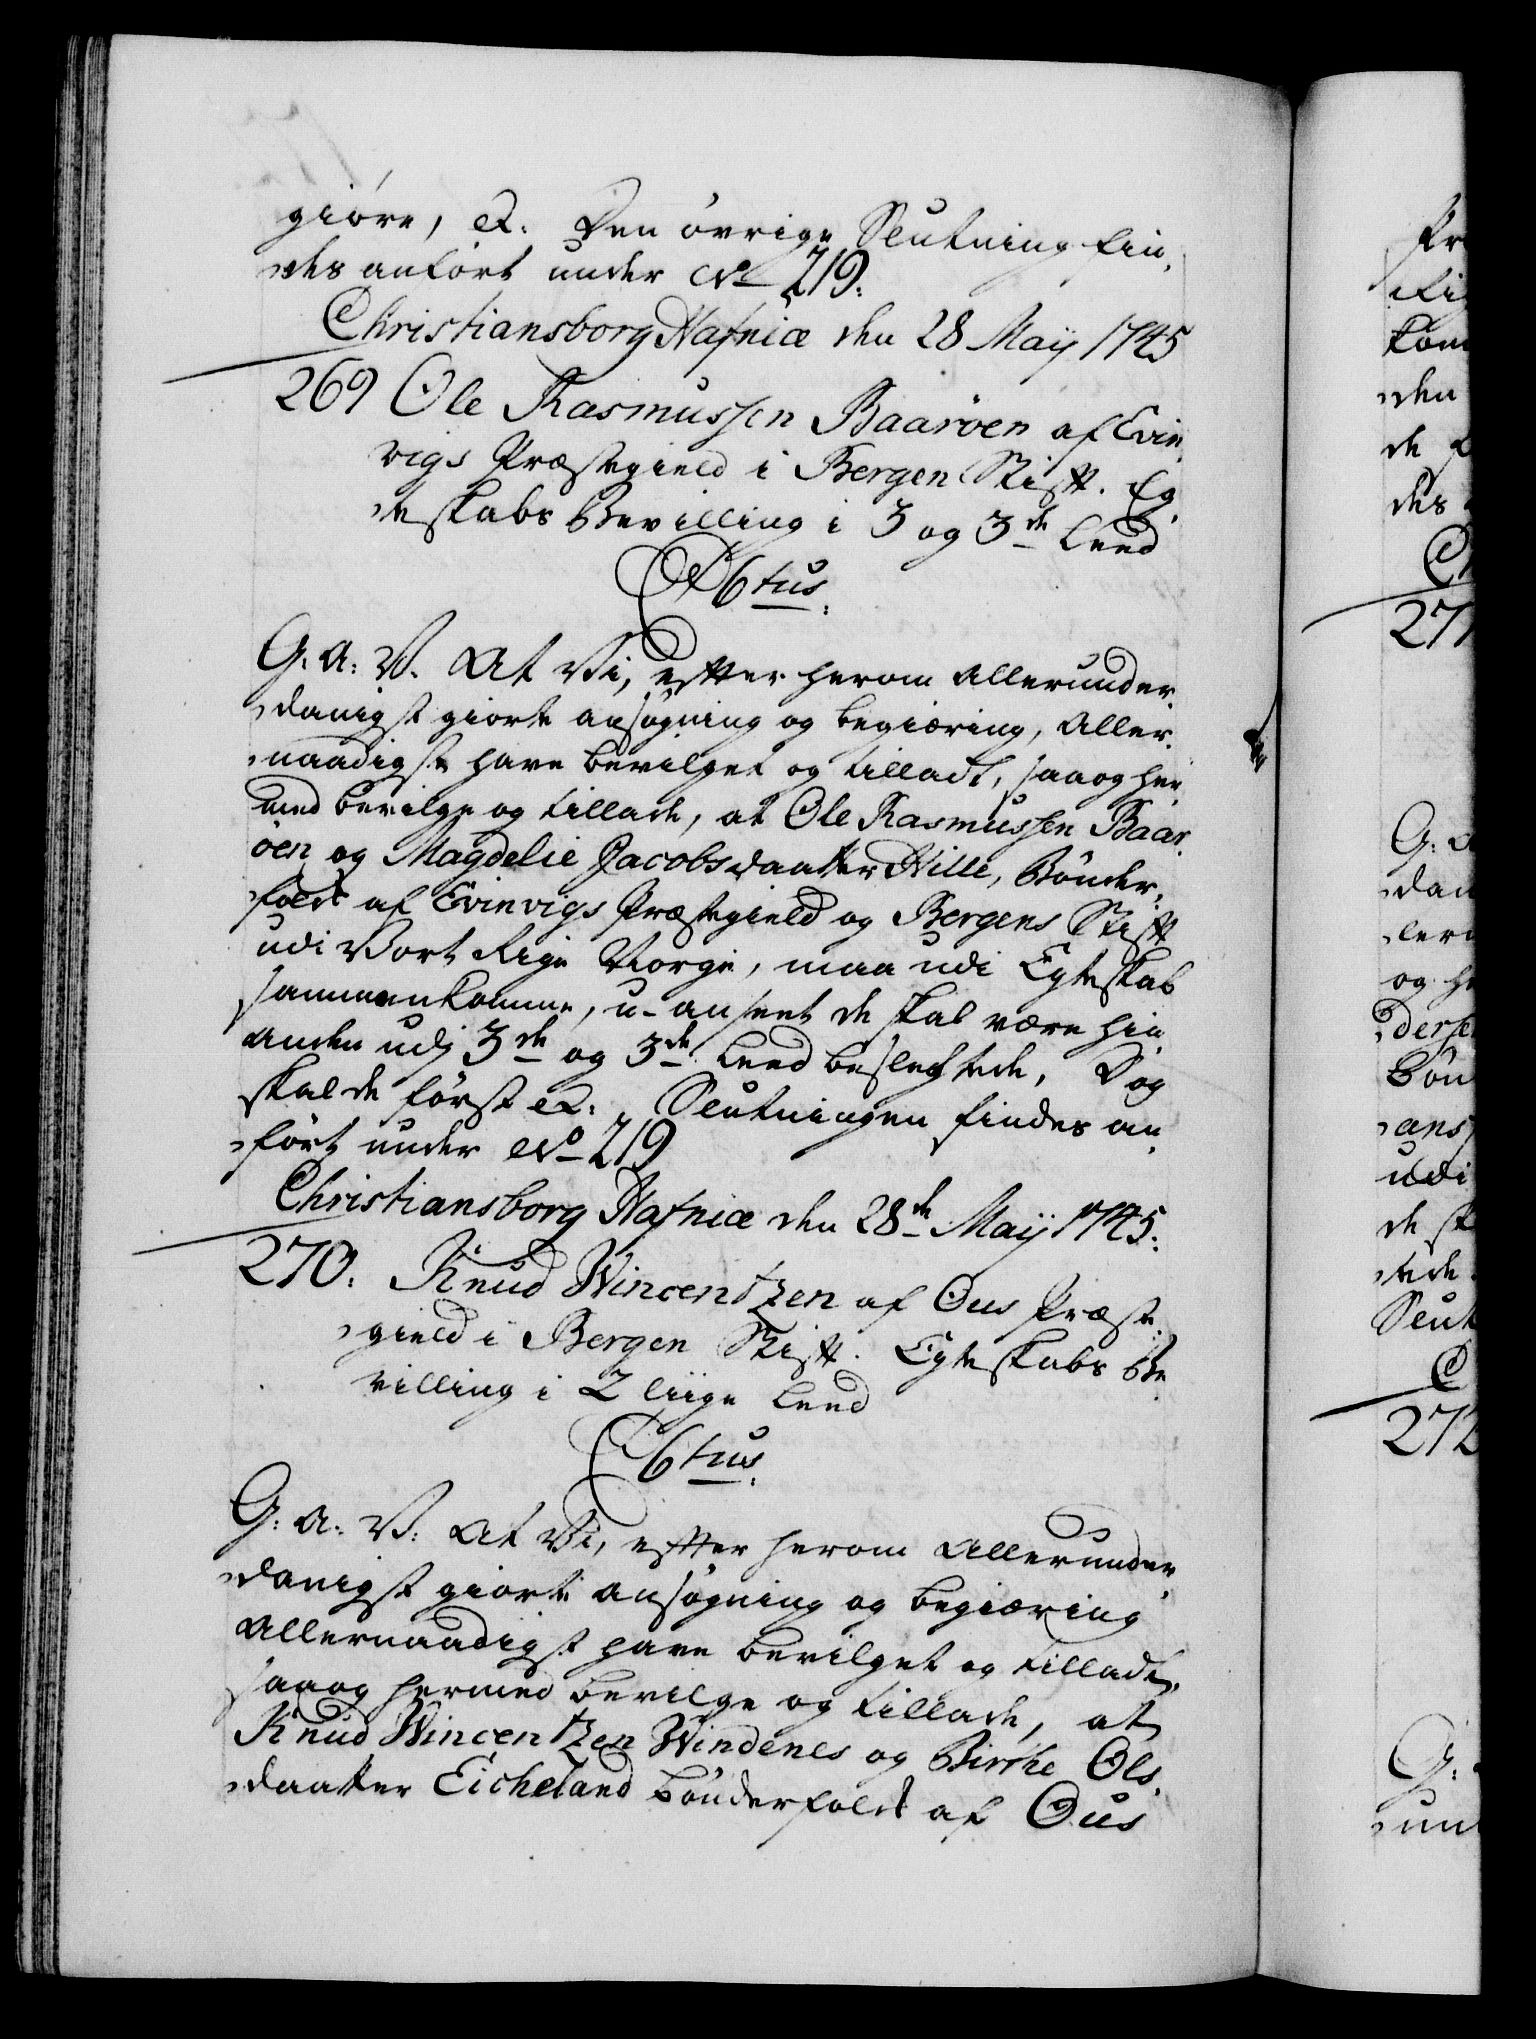 giöre, etc. Den övrige Slutning fin¬
des anfört under No 219.
Christiansborg Hafniæ den 28 Maÿ 1745
269 Ole Rasmussen Baaröen af Evin¬
vigs Præstegield i Bergen Stift. Eg¬
teskabs Bevilling i 3 og 3de Leed
C 6tus.
G: A: V. At Vi, efter herom allerunder¬
danigst giorte ansøgning og begiæring, aller¬
naadigst have bevilget og tilladt, saa og her¬
med bevilge og tillade, at Ole Rasmussen Baar¬
öen og Magdelie Jacobsdaatter Hille, Bönder¬
folk af Evinvigs Præstegield og Bergens Stift
udi Vort Rige Norge, maa udi Egteskab
sammenkomme, u-anseet de skal være hin¬
anden udj 3de og 3de Leed beslegtede, Dog
skal de först etc. Slutningen findes an¬
fört under No 219
Christiansborg Hafniæ den 28de Maÿ 1745.
270. Knud Wincentzen af Ous Præste¬
gield i Bergen Stift. Egteskabs Be¬
villing i 2 liige Leed
C 6tus.
G: A: V: At Vi, efter herom allerunder¬
danigst giorte ansögning og begiæring
allernaadigst have bevilget og tilladt,
saa og hermed bevilge og tillade, at
Knud Wincentzen Windenes og Birthe Ols¬
daatter Eicheland bönderfolk af Ous